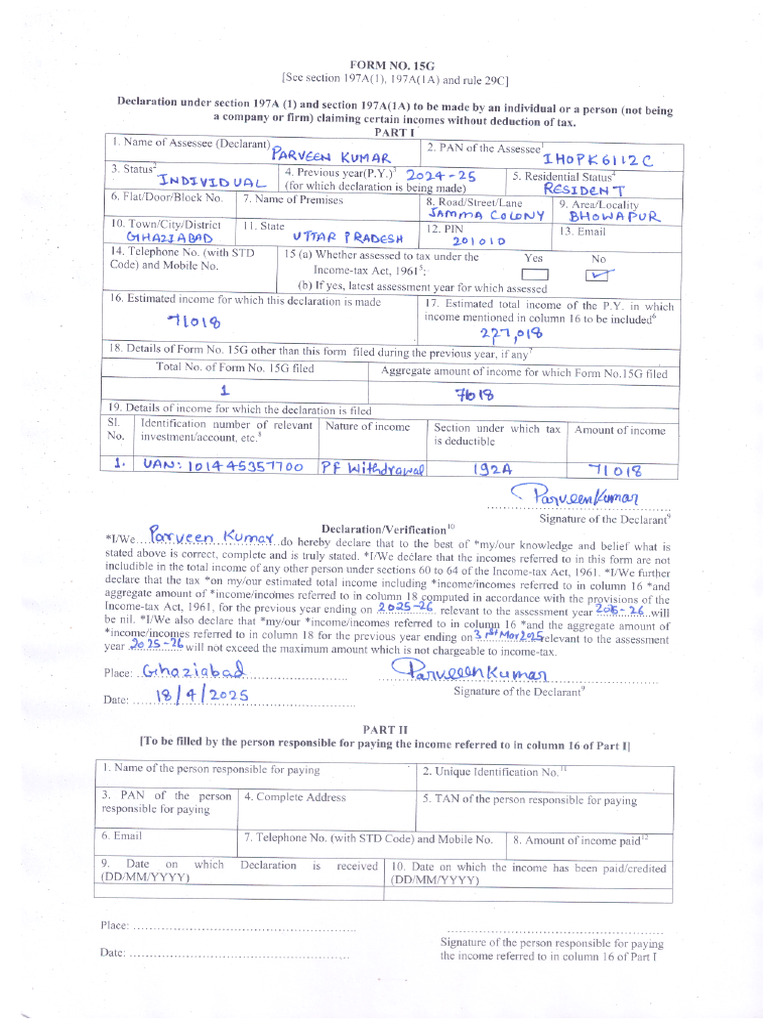 FORM NO. 15G
[See section 197A(1), 197A(1A) and rule 29C]
Declaration under section 197A (1) and section 197A(1A) to be made by an individual or a person (not being
a company or firm) claiming certain incomes without deduction of tax.
PART I
1. Name of Assessee (Declarant) PARVEEN KUMAR
2. PAN of the Assessee1 IHOPK6112C
3. Status2 INDIVIDUAL
4. Previous year(P.Y.)3 2024-25
(for which declaration is being made)
5. Residential Status4 RESIDENT
6. Flat/Door/Block No.
7. Name of Premises
8. Road/Street/Lane
JAMMA COLONY
9. Area/Locality
BHOWAPUR
10. Town/City/District
GIHAZIABAD
11. State
UTTAR PRADESH
12. PIN
201010
13. Email
14. Telephone No. (with STD
Code) and Mobile No.
15 (a) Whether assessed to tax under the
Income-tax Act, 19615:
Yes No
(b) If yes, latest assessment year for which assessed
16. Estimated income for which this declaration is made
71018
17. Estimated total income of the P.Y. in which
income mentioned in column 16 to be included6
227,018
18. Details of Form No. 15G other than this form filed during the previous year, if any7
Total No. of Form No. 15G filed
Aggregate amount of income for which Form No.15G filed
1
19. Details of income for which the declaration is filed
Sl.
No.
Identification number of relevant
investment/account, etc.8
Nature of income
Section under which tax
is deductible
Amount of income
1. UAN: 101445357700 PF Withdrawal 192A 71018
ParveenKumar
Signature of the Declarant9
Declaration/Verification10
*I/We Parveen Kumar do hereby declare that to the best of *my/our knowledge and belief what is
stated above is correct, complete and is truly stated. *I/We declare that the incomes referred to in this form are not
includible in the total income of any other person under sections 60 to 64 of the Income-tax Act, 1961. *I/We further
declare that the tax *on my/our estimated total income including *income/incomes referred to in column 16 *and
aggregate amount of *income/incomes referred to in column 18 computed in accordance with the provisions of the
Income-tax Act, 1961, for the previous year ending on 2025-26 relevant to the assessment year 2025-26 will
be nil. *I/We also declare that *my/our *income/incomes referred to in column 16 *and the aggregate amount of
*income/incomes referred to in column 18 for the previous year ending on 31st Mar 2025 relevant to the assessment
year 2025-26 will not exceed the maximum amount which is not chargeable to income-tax.
Place: Gihaziabad
ParveenKumar
Date: 18/4/2025
Signature of the Declarant9
PART II
[To be filled by the person responsible for paying the income referred to in column 16 of Part I]
1. Name of the person responsible for paying
2. Unique Identification No.11
3. PAN of the person
responsible for paying
4. Complete Address
5. TAN of the person responsible for paying
6. Email
7. Telephone No. (with STD Code) and Mobile No.
8. Amount of income paid12
9. Date on which Declaration is received
(DD/MM/YYYY)
10. Date on which the income has been paid/credited
(DD/MM/YYYY)
Place:
Date:
Signature of the person responsible for paying
the income referred to in column 16 of Part I